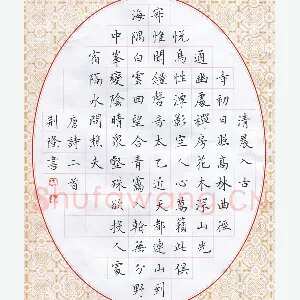 清晨入古
寺初日照高林曲徑
通幽處禪房花木深山光
悅鳥性潭影空人心萬籟此俱
寂惟聞鐘磬音太乙近天都連山到
海隅白雲回望合青靄入看無分野
中峯變陰晴眾壑殊欲投人處
宿隔水問樵夫
唐詩二首
荆隆書
Shufawang.CN